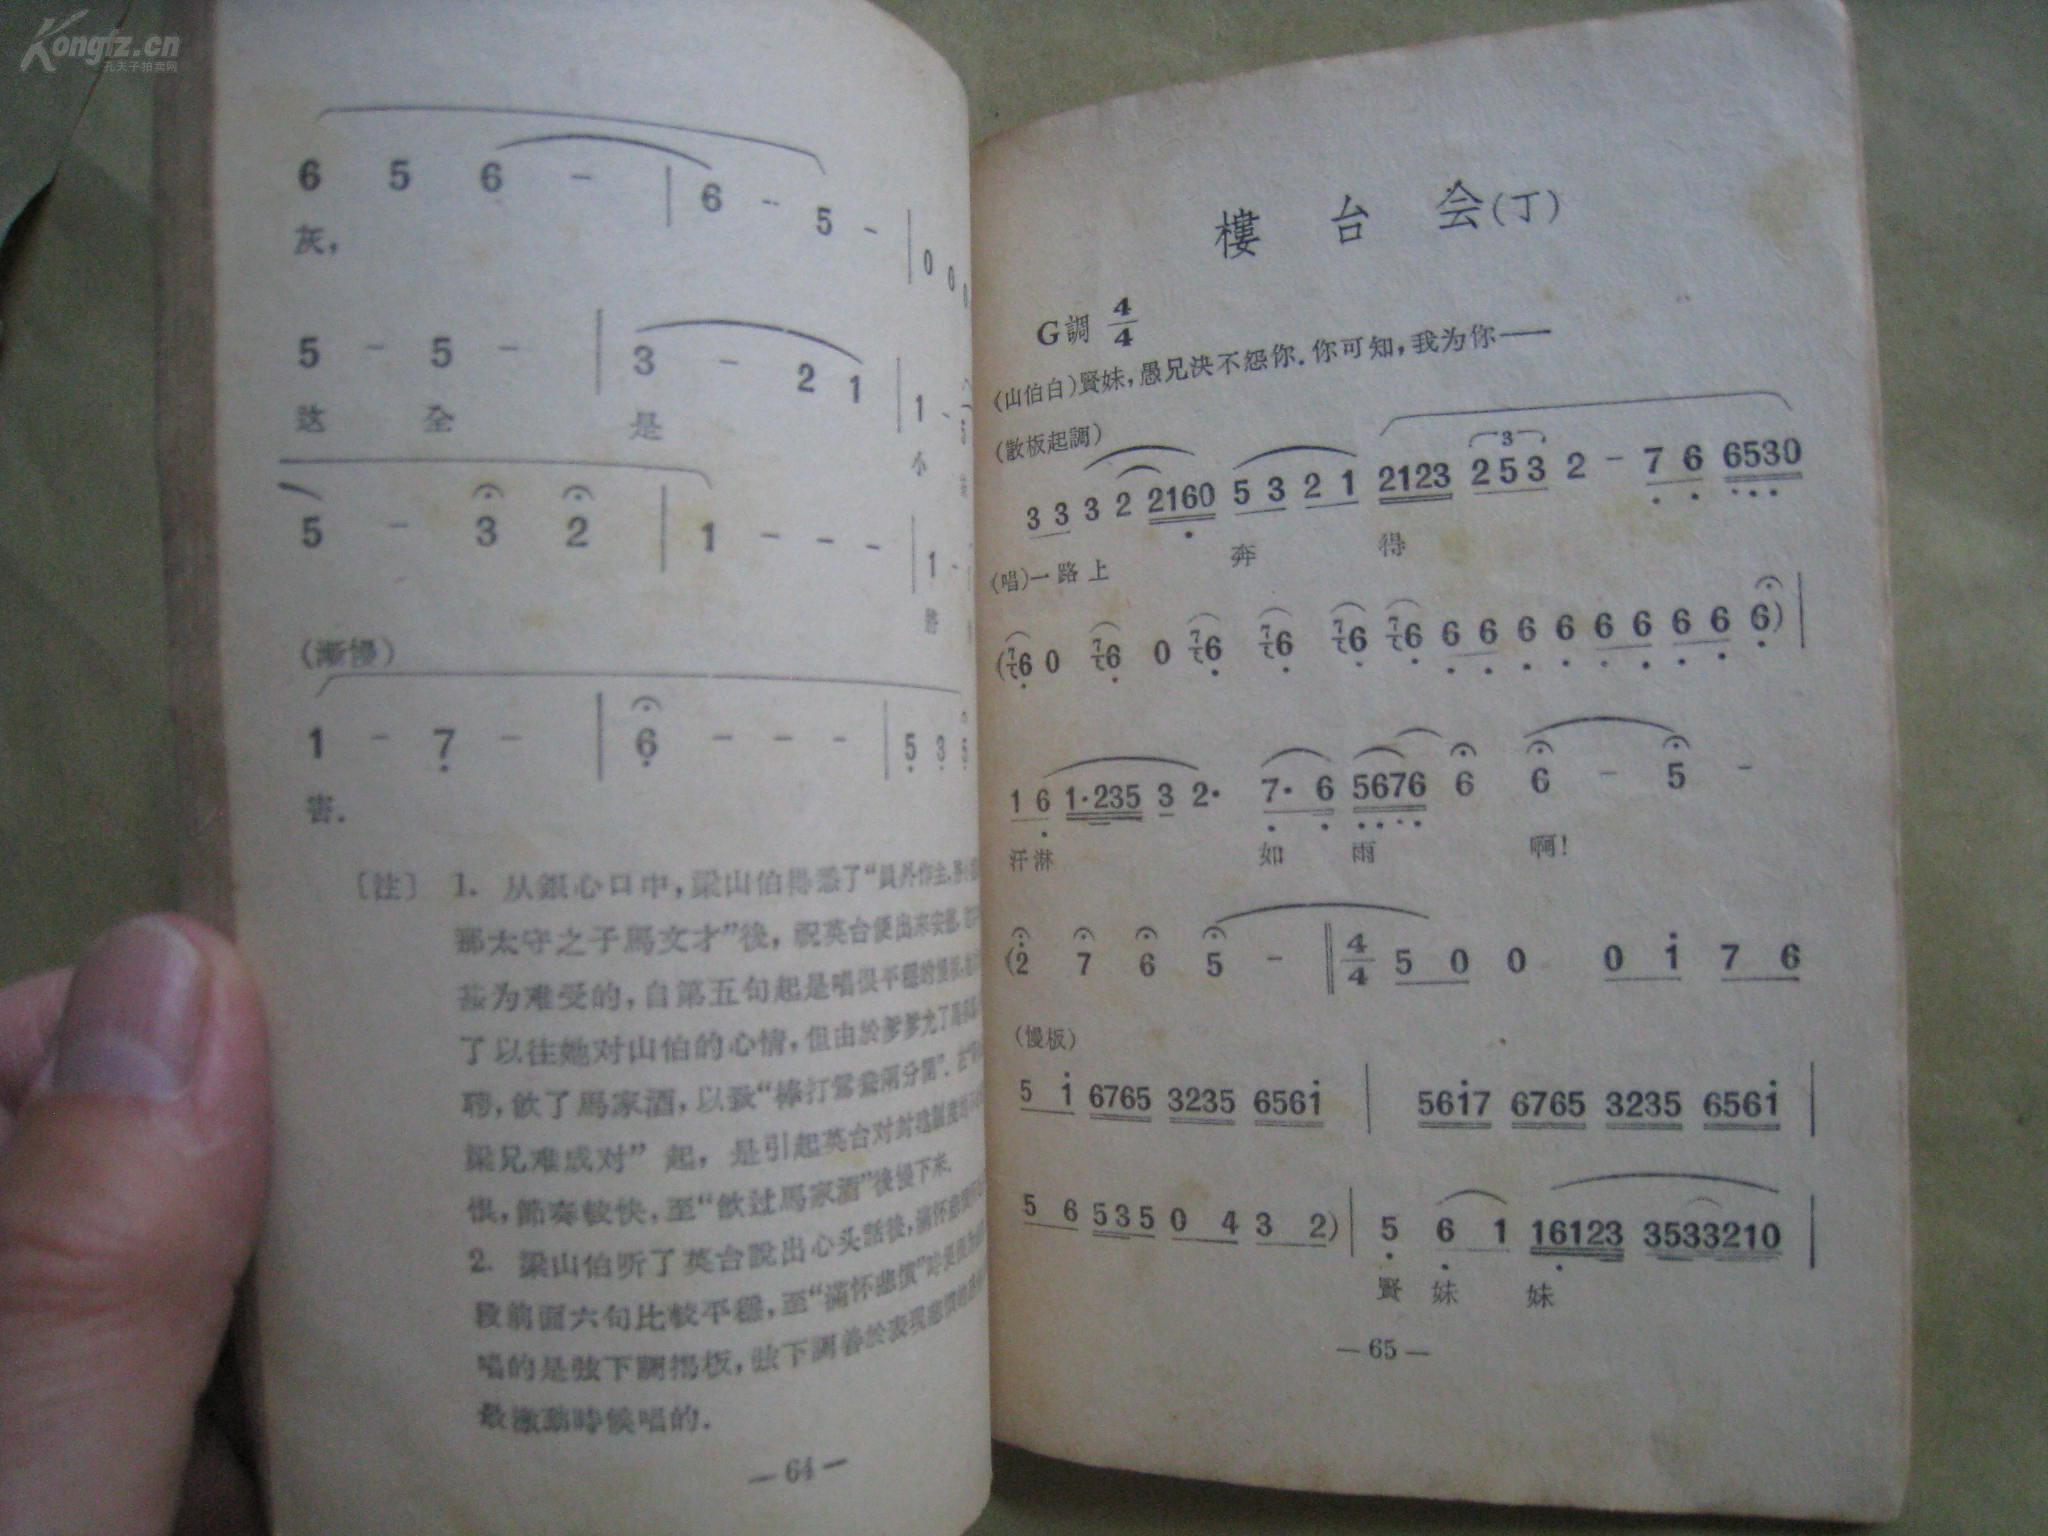 Kongfz.cn
孔夫子拍卖网
6 5 6 - | 6 - 5 - | 0 0 0
灰，
5 - 5 - | 3 - 2 1 | 1 - 5
这 全 是 小
5 - 3 2 | 1 - - - | 1 -
(漸慢)
1 - 7 - | 6 - - - | 5 3 5
害.
〔注〕 1. 从銀心口中，梁山伯得悉了“員外作主，
那太守之子馬文才”後，祝英台便出来安慰.
甚为难受的，自第五句起是唱很平穩的慢板，
了以往她对山伯的心情，但由於爹爹允了馬家
聘，飲了馬家酒，以致“棒打鴛鴦兩分開”.
梁兄难成对” 起， 是引起英台对封建制度的
恨，節奏較快，至“飲过馬家酒”後慢下来.
2. 梁山伯听了英台說出心头話後，滿怀悲憤
段前面六句比較平穩，至“滿怀悲憤”
唱的是弦下調搗板，弦下調善於表現悲憤的
最激動時候唱的.
— 64 —
樓 台 会(丁)
G調 4/4
(山伯白)賢妹，愚兄決不怨你．你可知，我为你——
(散板起調)
3 3 3 2 2160 5 3 2 1 2123 2 5 3 2 - 7 6 6530
(唱)一路上 奔 得
(7 6 0 7 6 0 7 6 7 6 7 6 7 6 6 6 6 6 6 6 6 6 6) |
1 6 1·235 3 2· 7· 6 5676 6 6 - 5 -
汗淋 如 雨 啊！
(2 7 6 5 - ‖ 4/4 5 0 0 0 1 7 6
(慢板)
5 1 6765 3235 6561 | 5617 6765 3235 6561 |
5 6 535 0 4 3 2) | 5 6 1 16123 3533210 |
賢 妹 妹
— 65 —